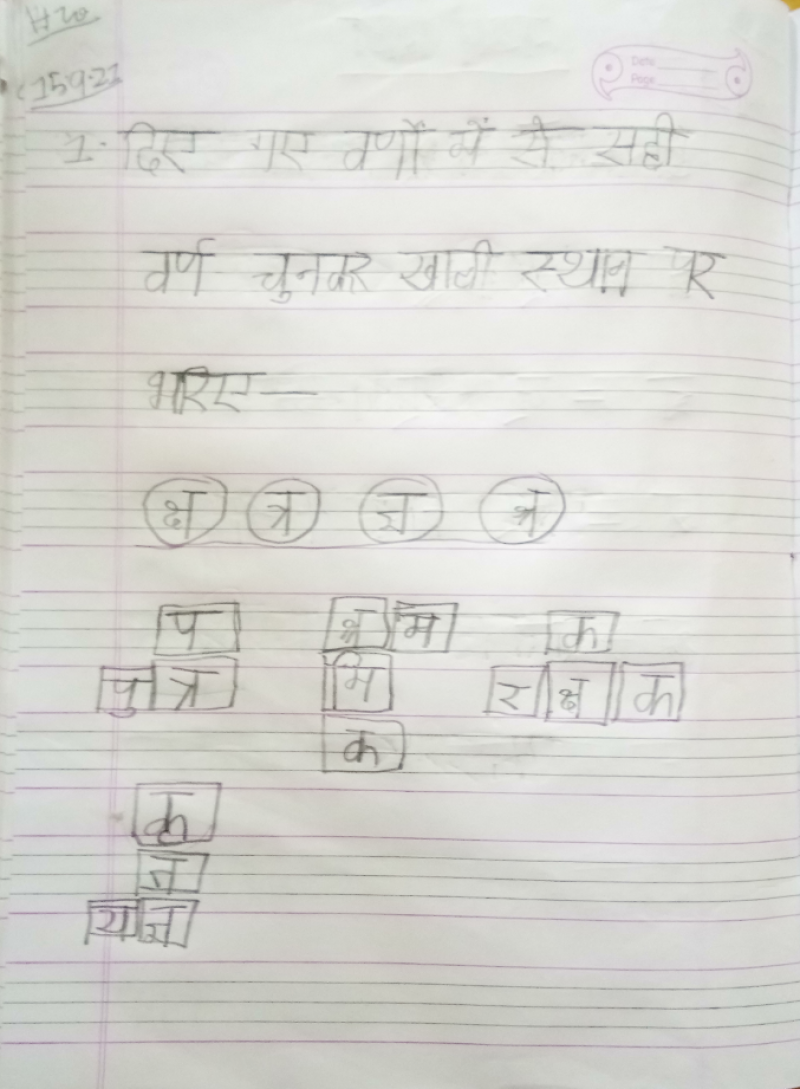 H.W
15.9.21
Date
Page
1. दिए गए वर्णों में से सही
वर्ण चुनकर खाली स्थान पर
भरिए—
क्ष त्र ज्ञ श्र
प श्र म क
पु त्र मि र क्ष क
क
कृ
त
य ज्ञ